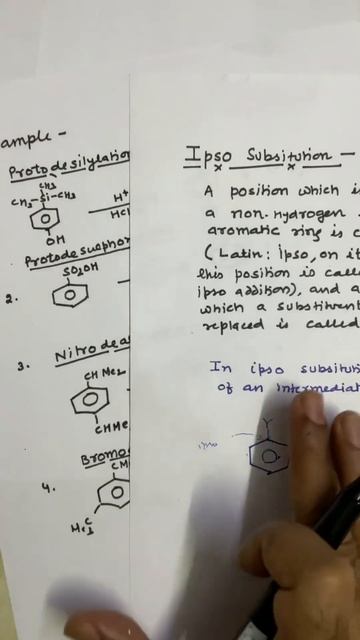 ample -
Protodesilylation
CH3
CH3-Si-CH3
H+
HCl
OH
Protodesulphon
SO2OH
2.
Nitrodea
3.
CHMe2
CHMe
Bromo
4.
CM
Me3C
Ipso Subsitution -
A position which i
a non-hydrogen
aromatic ring is c
(Latin: ipso, on it
this position is calle
ipso addition), and a
which a substituent
replaced is called
In ipso subsituti
of an intermediat
Y
ipso